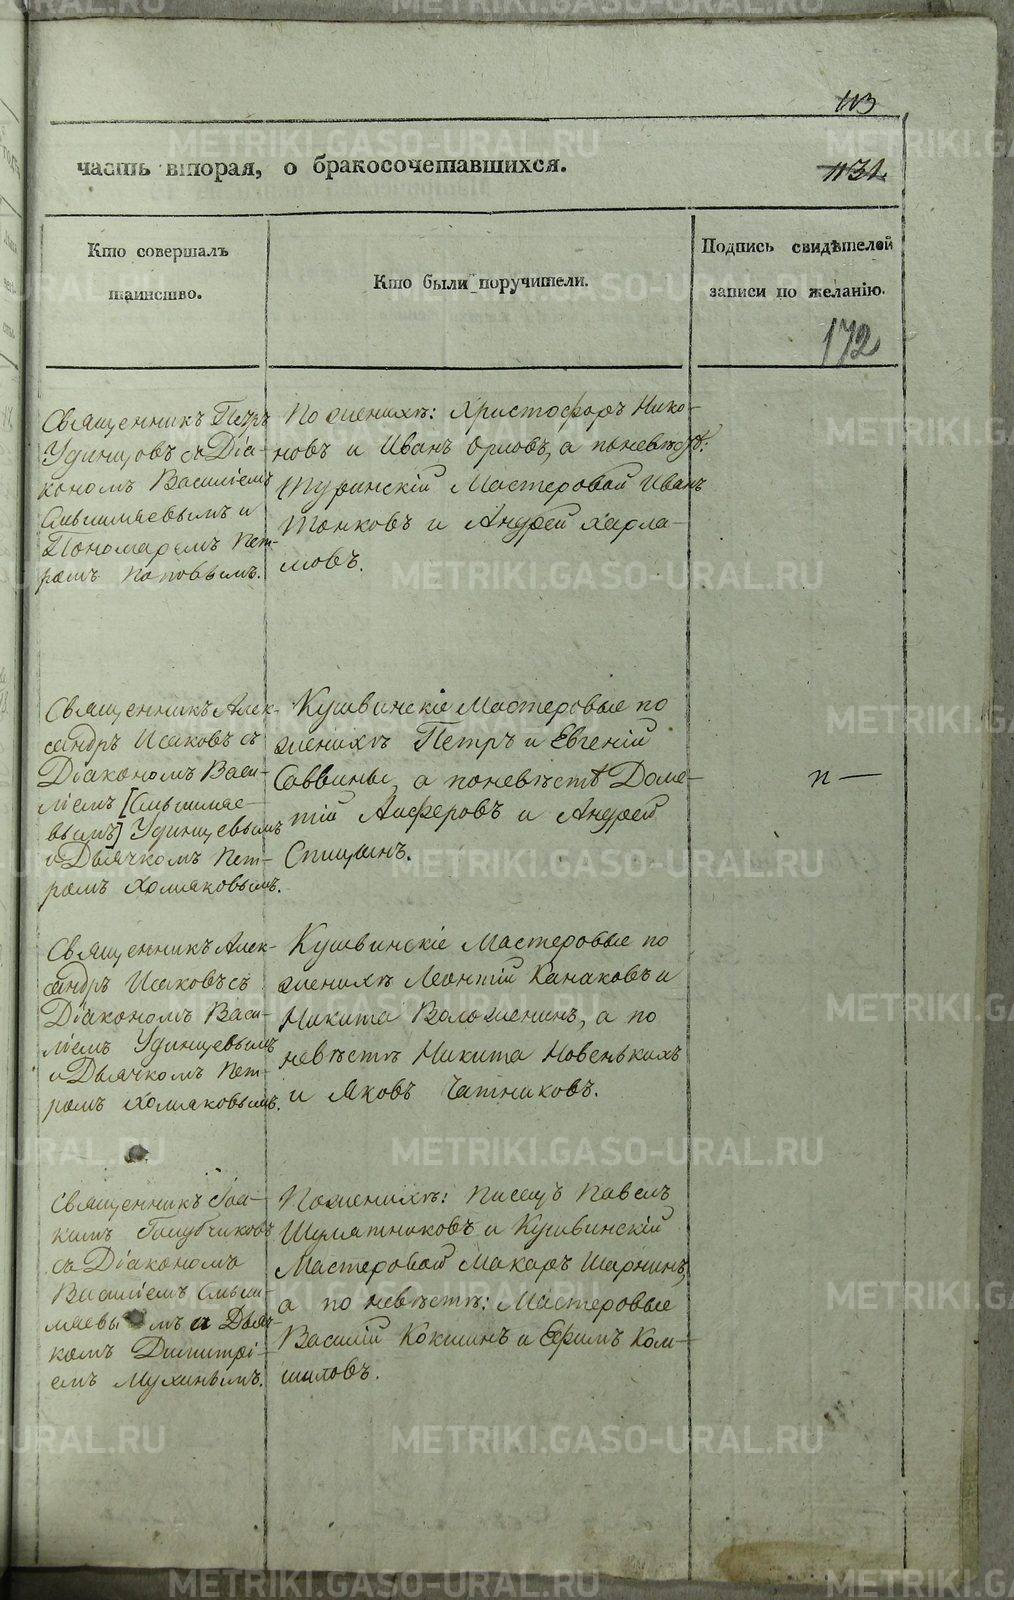 113
часть вторая, о бракосочетавшихся.
1131.
Кто совершалъ
таинство.
Кто были поручители.
Подпись свидѣтелей
записи по желанію.
172
Священникъ Петръ
Удинцовъ съ Діа-
кономъ Василіемъ
и
Пономаремъ Пет-
ромъ Поповымъ.
По женихѣ: Христофоръ Нико-
новъ и Иванъ Орловъ, а по невѣстѣ:
Туринскій Мастеровой Иванъ
Тонковъ и Андрей Харла-
мовъ.
Священникъ Алек-
сандръ Исаковъ съ
Діакономъ Васи-
ліемъ
Удинцевымъ
и Дьячкомъ Пет-
ромъ Хомяковымъ.
Кушвинскіе Мастеровые по
женихѣ Петръ и Евгеній
Саввины, а по невѣстѣ Доме-
тій Алферовъ и Андрей
Спицынъ.
п —
Священникъ Алек-
сандръ Исаковъ съ
Діакономъ Васи-
ліемъ Удинцевымъ
и Дьячкомъ Пет-
ромъ Хомяковымъ.
Кушвинскіе Мастеровые по
женихѣ Леонтій Канаковъ и
Никита Воложенинъ, а по
невѣстѣ Никита Новенькихъ
и Яковъ Чатниковъ.
Священникъ Іоа-
кимъ Голубчиковъ
съ Діакономъ
Василіемъ
и Дьяч-
комъ Димитрі-
емъ Мухинымъ.
По женихѣ: писецъ Павелъ
Шумятниковъ и Кушвинскій
Мастеровой Макаръ Шарнинъ,
а по невѣстѣ: Мастеровые
Василій Кокшинъ и Ефимъ Ком-
шиловъ.
METRIKI.GASO-URAL.RU